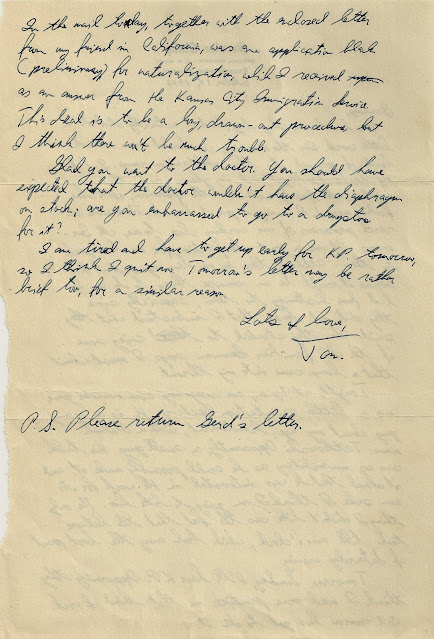 In the mail today, together with the enclosed letter
from my friend in California, was an application blank
(preliminary) for naturalization, which I received
as an answer from the Kansas City Immigration Service.
This deal is to be a long, drawn-out procedure, but
I think there won't be much trouble.
Glad you went to the doctor. You should have
expected that the doctor wouldn't have the diaphragm
on stock; are you embarrassed to go to a drugstore
for it?
I am tired and have to get up early for KP tomorrow,
so I think I quit now. Tomorrow's letter may be rather
brief too, for a similar reason.
Lots of love,
Jan.
P.S. Please return Gerd's letter.